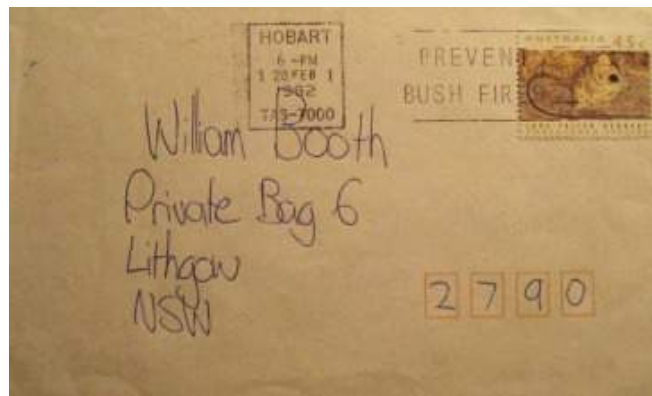 HOBART
6-PM
1 28 FEB 1
1992
TAS-7000
PREVENT
BUSH FIRES
AUSTRALIA 45c
William Booth
Private Bag 6
Lithgow
NSW
2790